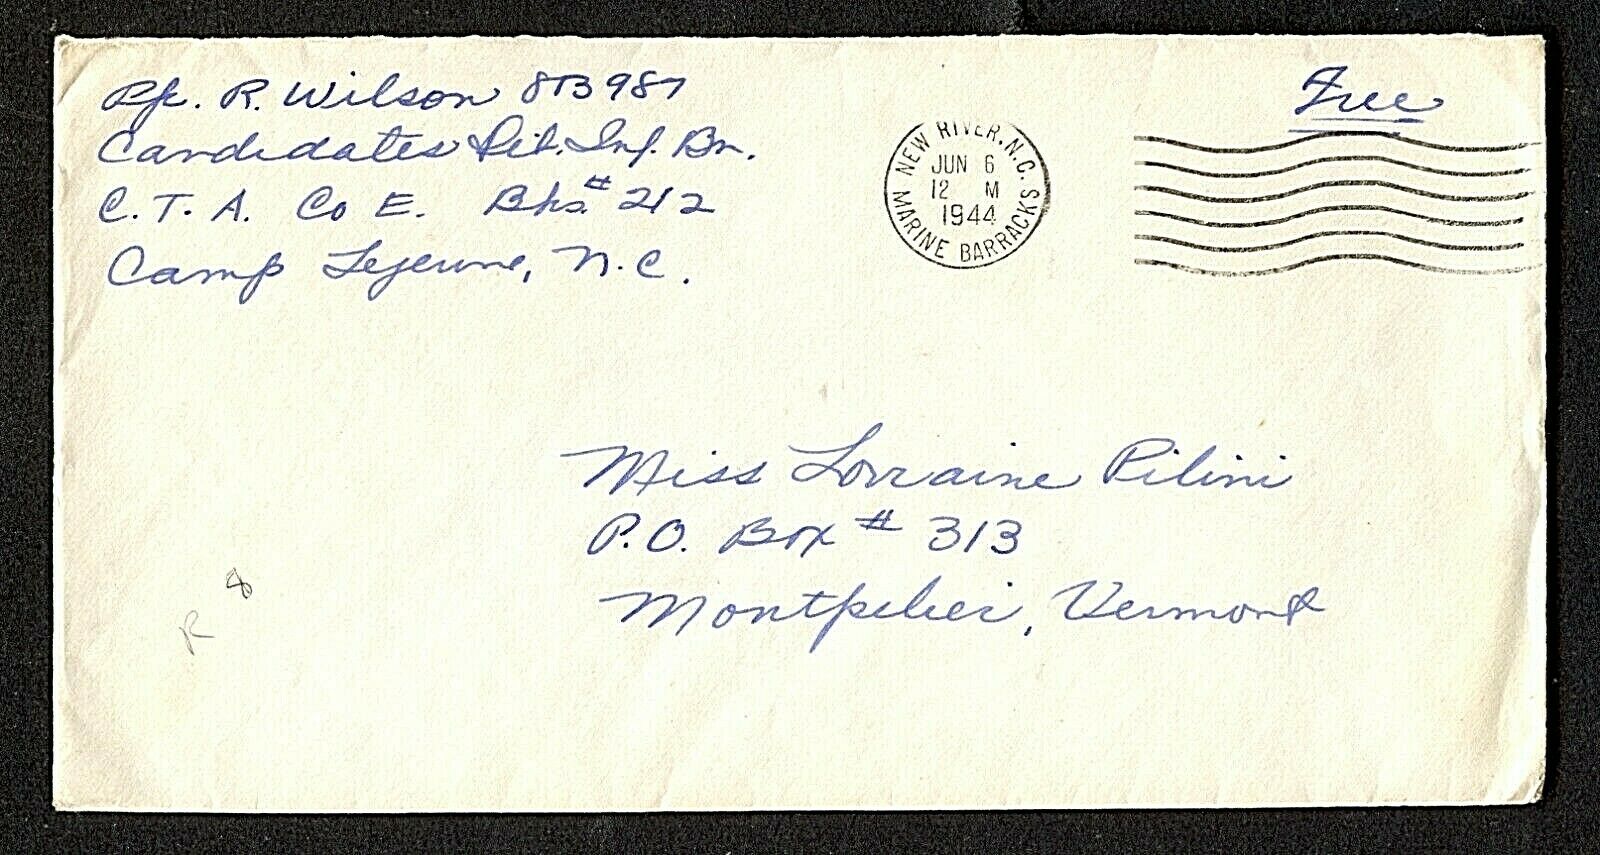 Pfc. R. Wilson 873987
Candidates Det. Inf. Bn.
C. T. A. Co E. Bks. # 212
Camp Lejeune, N.C.
NEW RIVER, N.C.
JUN 6
12 M
1944
MARINE BARRACKS
Free
Miss Lorraine Pilini
P.O. Box # 313
Montpelier, Vermont
8
R